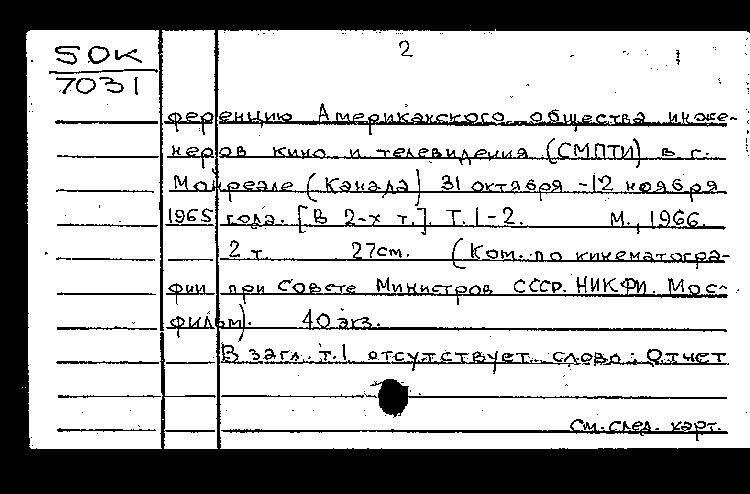 50К 2
7031
ференцию Американского общества инже-
неров кино и телевидения (СМПТИ) в г.
Монреале (Канада) 31 октября -12 ноября
1965 года. [В 2-х т.]. Т.1-2. М., 1966.
2 т. 27см. (Ком. по кинематогра-
фии при Совете Министров СССР. НИКФИ. Мос-
фильм). 40 экз.
В загл. т.1 отсутствует слово: Отчет
См. след. карт.